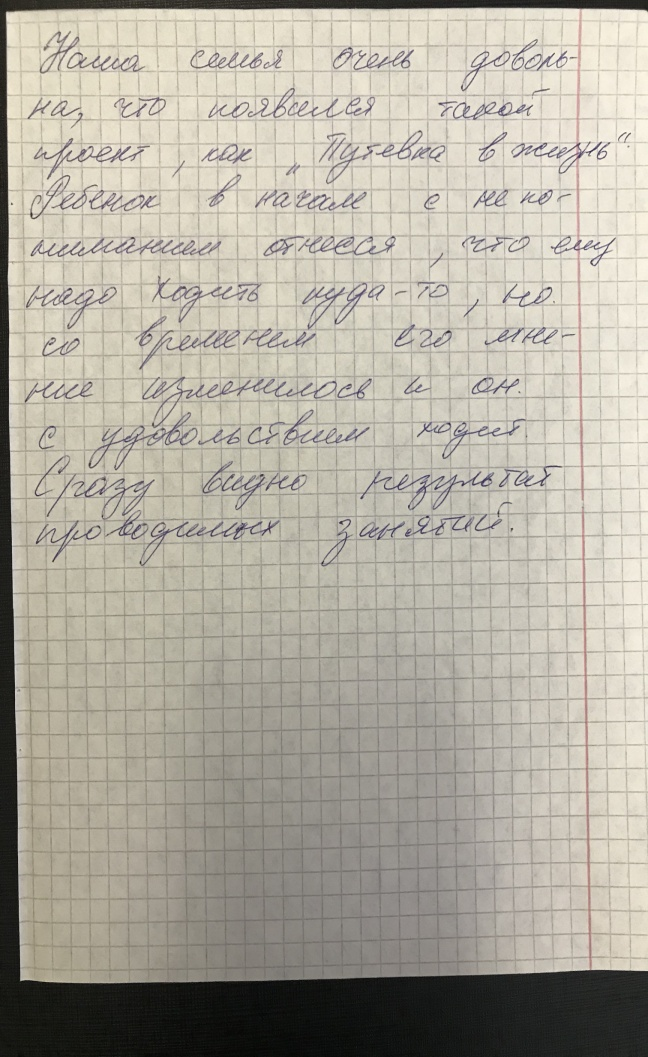 Наша семья очень доволь-
на, что появился такой
проект, как „Путевка в жизнь“.
Ребенок в начале с непо-
ниманием отнесся, что ему
надо ходить куда-то, но
со временем его мне-
ние изменилось и он
с удовольствием ходит.
Сразу видно результат
проводимых занятий.